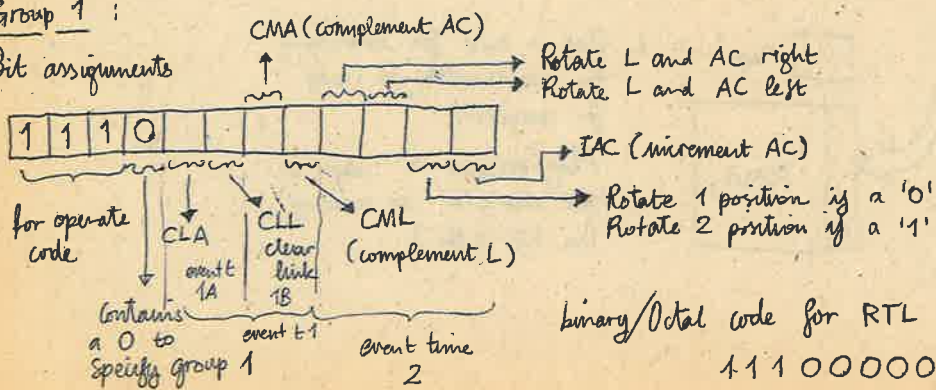 Group 1 :
CMA (complement AC)
Bit assignments
Rotate L and AC right
Rotate L and AC left
1 1 1 0
IAC (increment AC)
Rotate 1 position if a '0'
Rotate 2 position if a '1'
for operate
code
CLA
CLL
clear
link
CML
(complement L)
event t
1A
1B
Contains
a 0 to
specify group 1
event t 1
event time
2
binary/Octal code for RTL
1 1 1 0 0 0 0 0